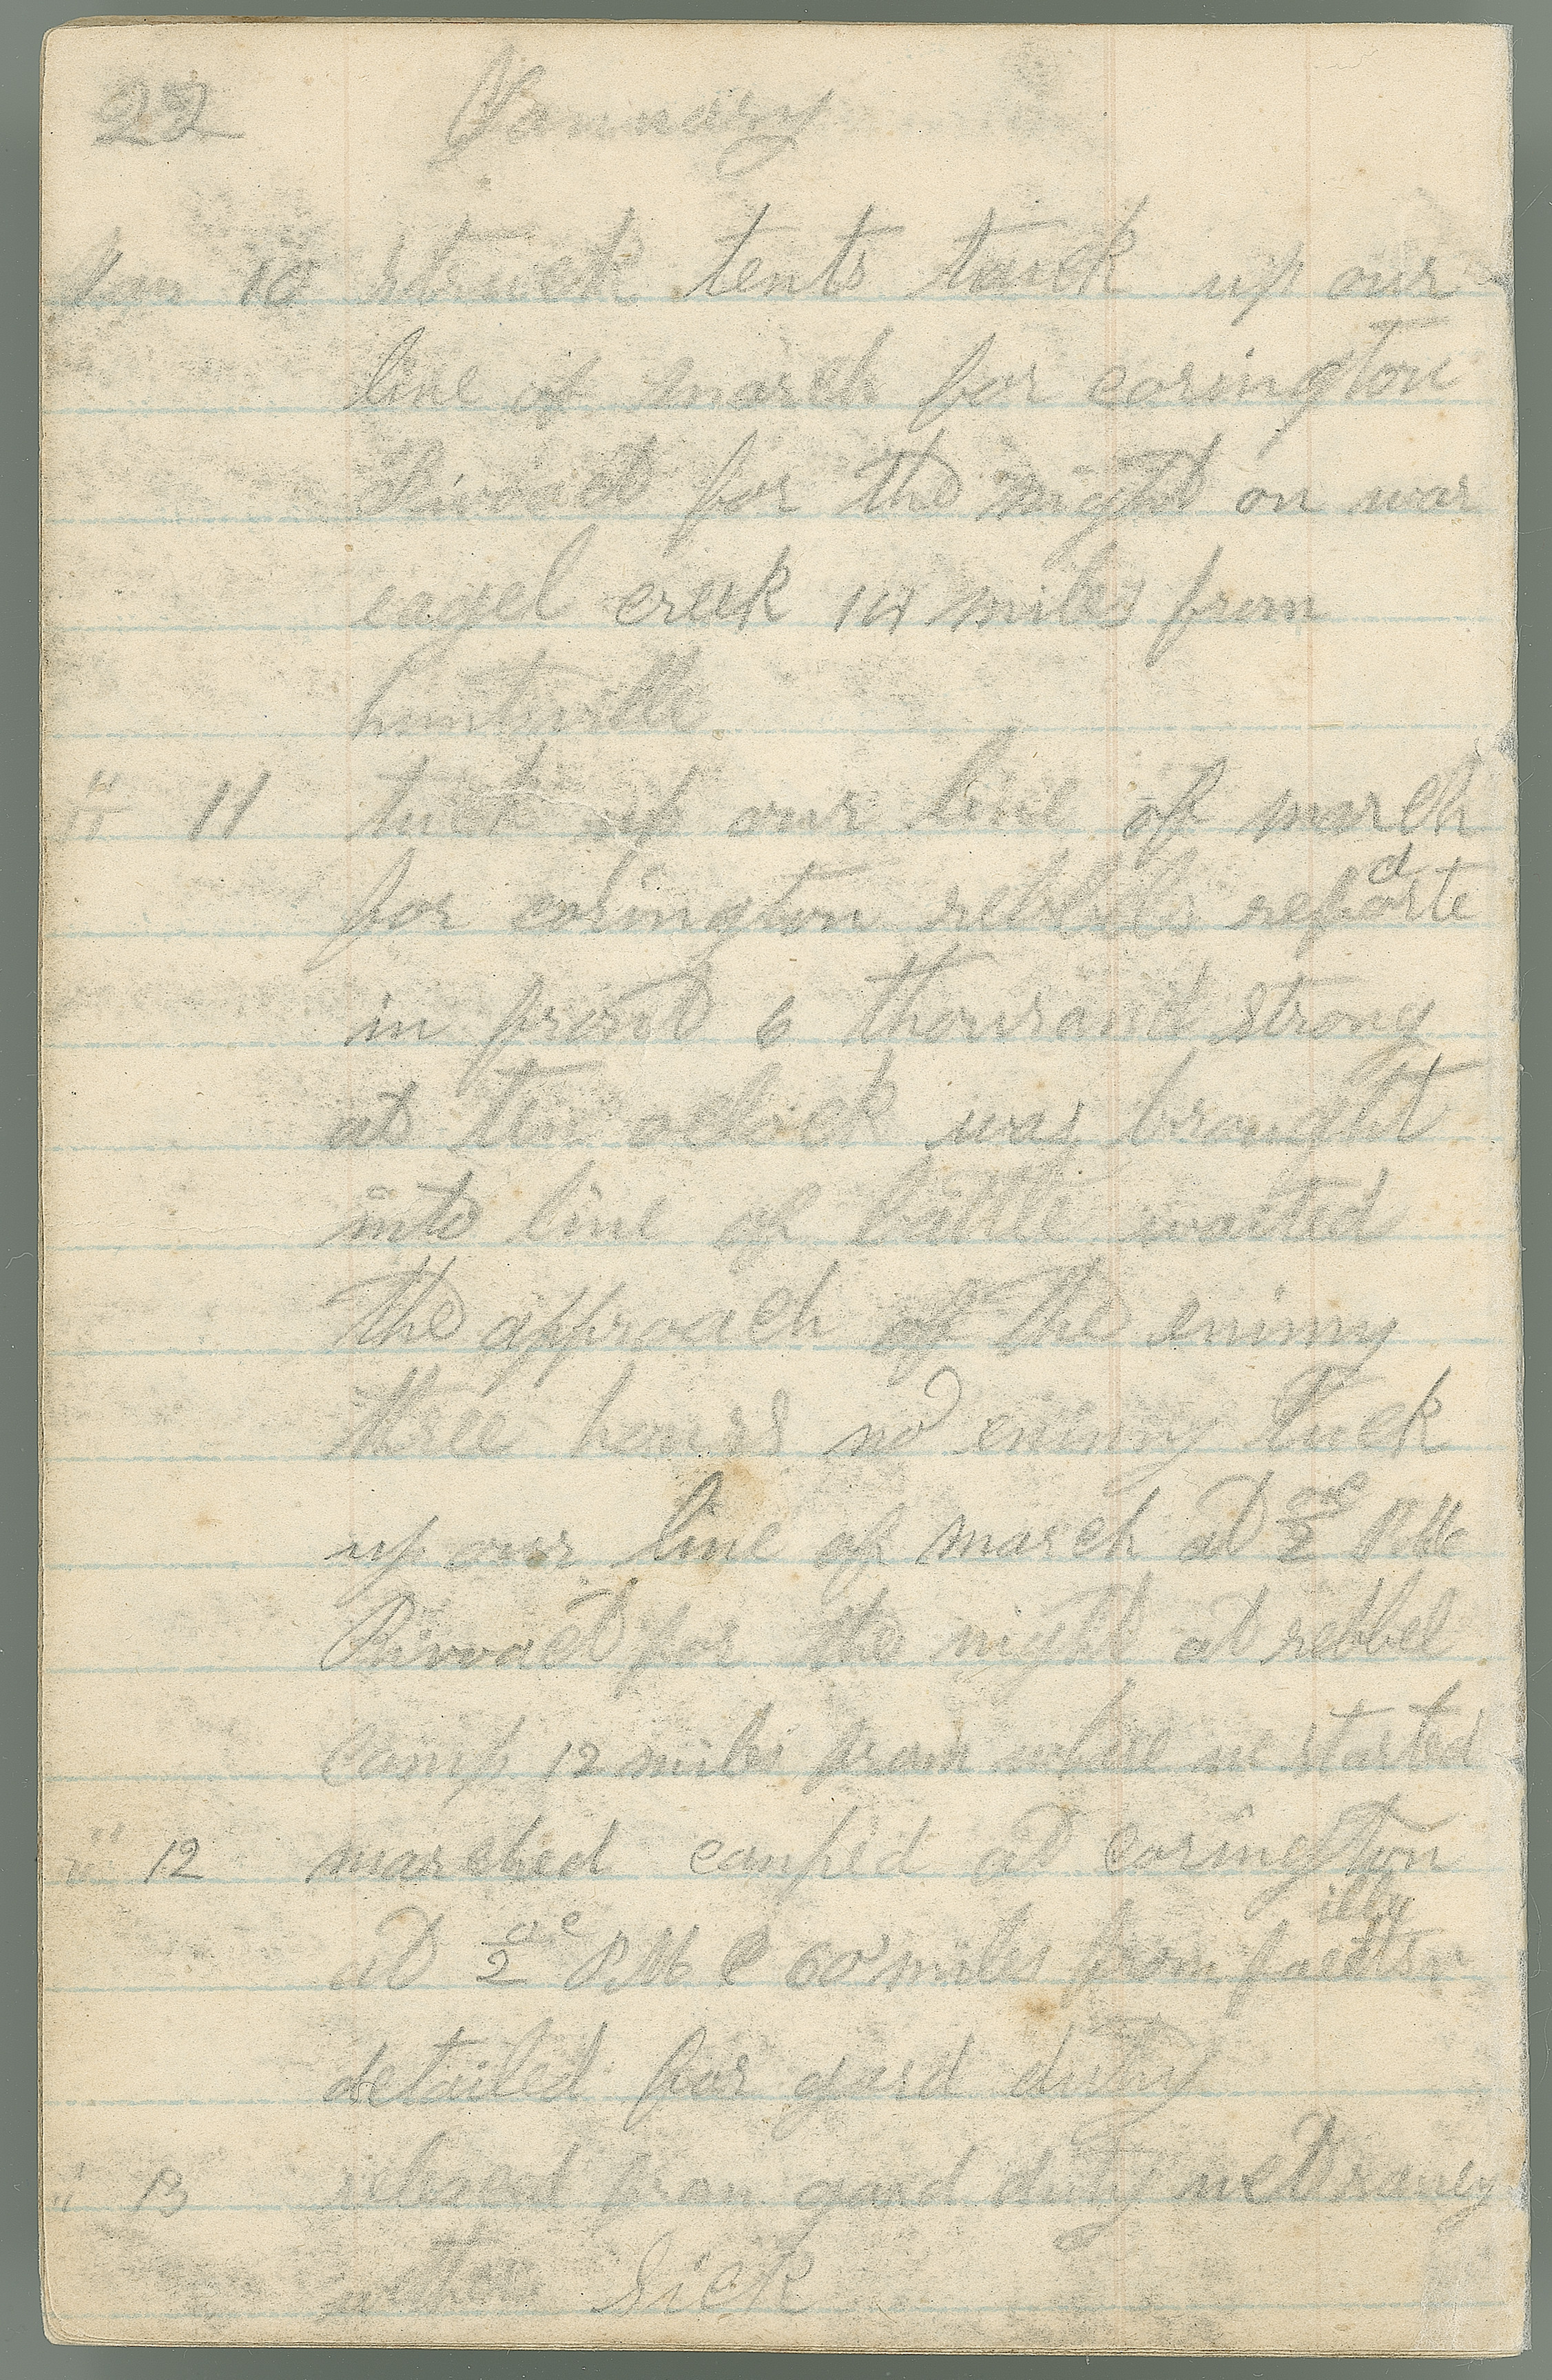 22 January
Jan 10 struck tents tuck up our
line of march for carington
Bivoact for the night on war
eagel creek 14 miles from
huntsville
" 11 tuck up our line of march
for carington rebbels reported
in front 6 thousand strong
at ten oclock was brought
into line of battle waited
the approach of the enimy
three hours no enimy tuck
up our line of march at 2 oc PM
Bivoact for the night at rebbel
camp 12 miles from whare we started
" 12 marched campid at carington
at 2 oc PM 60 miles from
detailed for gard duty
" 13 relieved from gard duty wet raney
wether sick